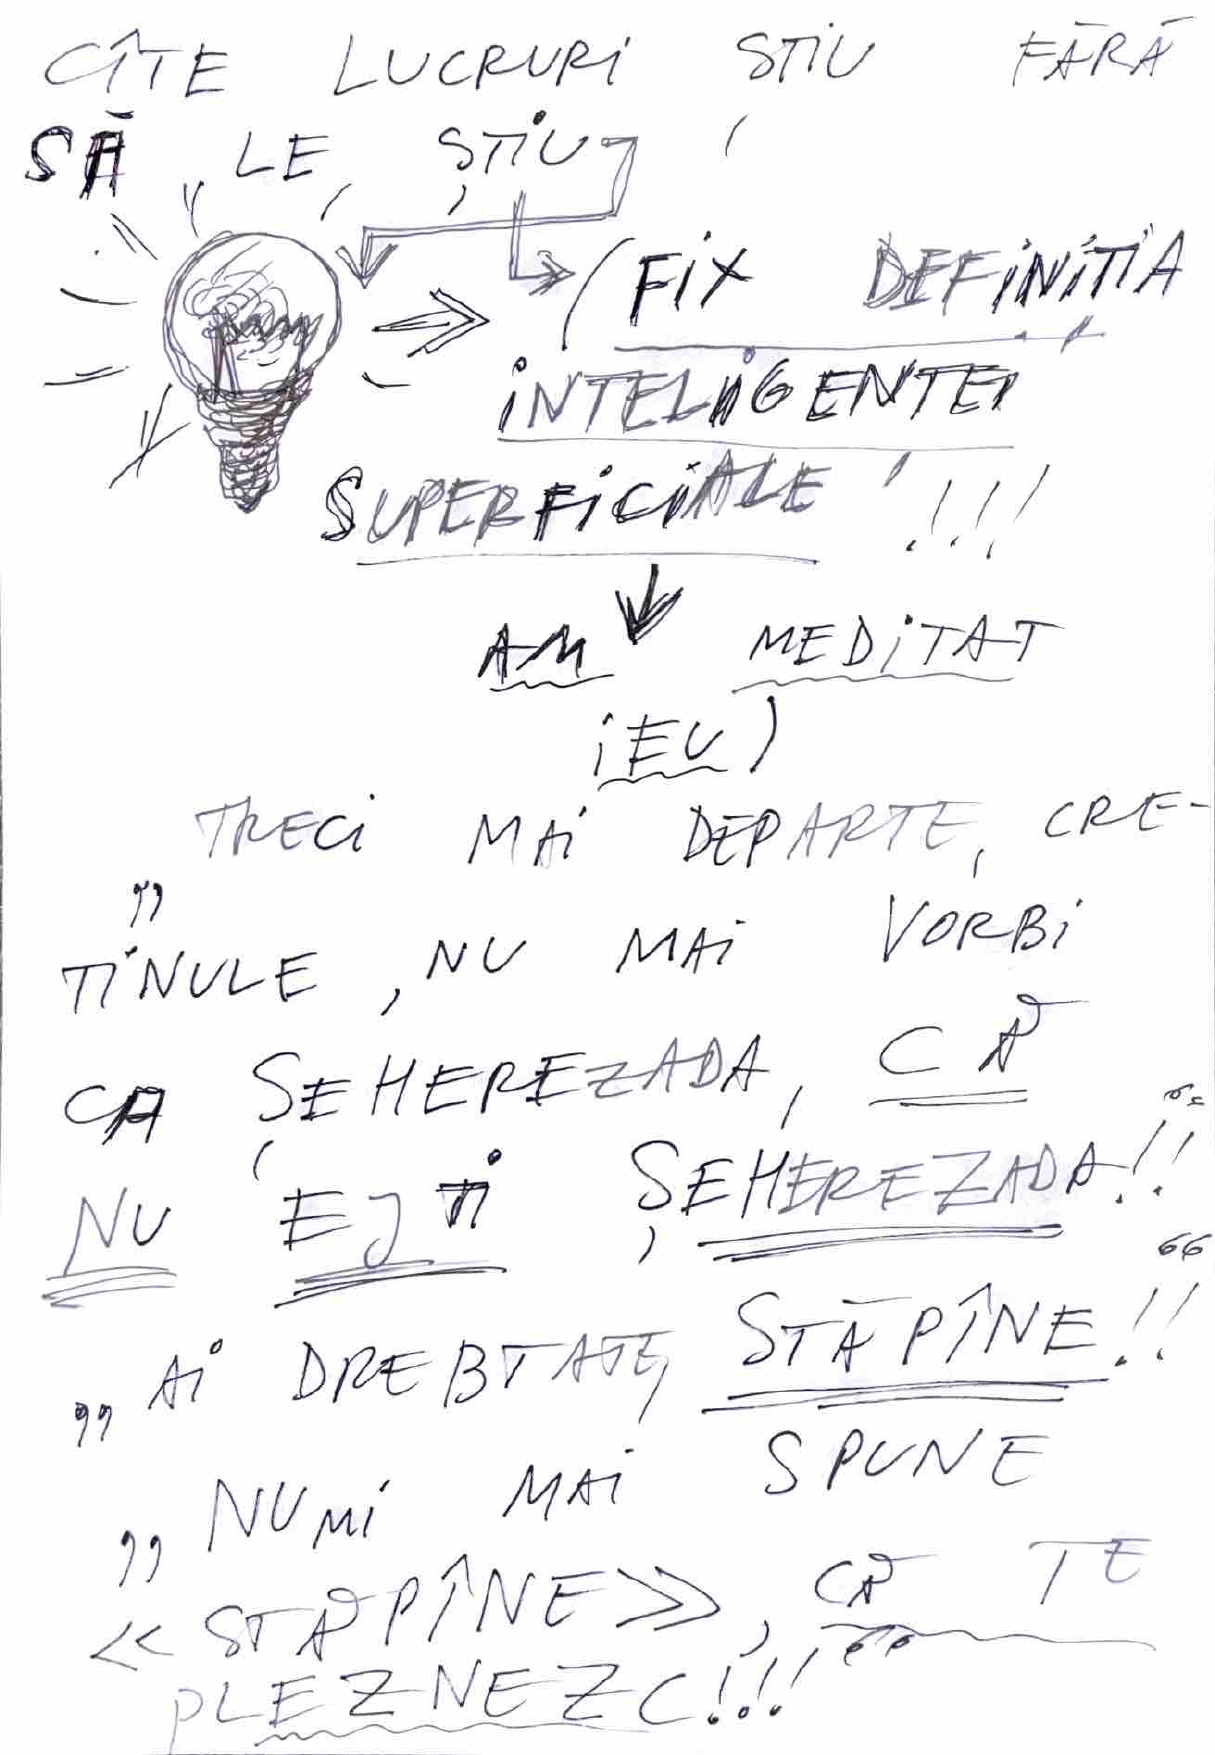 CÎTE LUCRURI ȘTIU FĂRĂ
SĂ LE ȘTIU
(FIX DEFINIȚIA
INTELIGENȚEI
SUPERFICIALE !!!
AM MEDITAT
IEU)
„TRECI MAI DEPARTE, CRE-
TINULE, NU MAI VORBI
CA ȘEHEREZADA, CĂ
NU EJTI ȘEHEREZADA!!“
„AI DREBTATE, STĂPÎNE!!“
„NUMI MAI SPUNE
«STĂPÎNE», CĂ TE
PLEZNEZC!!!“